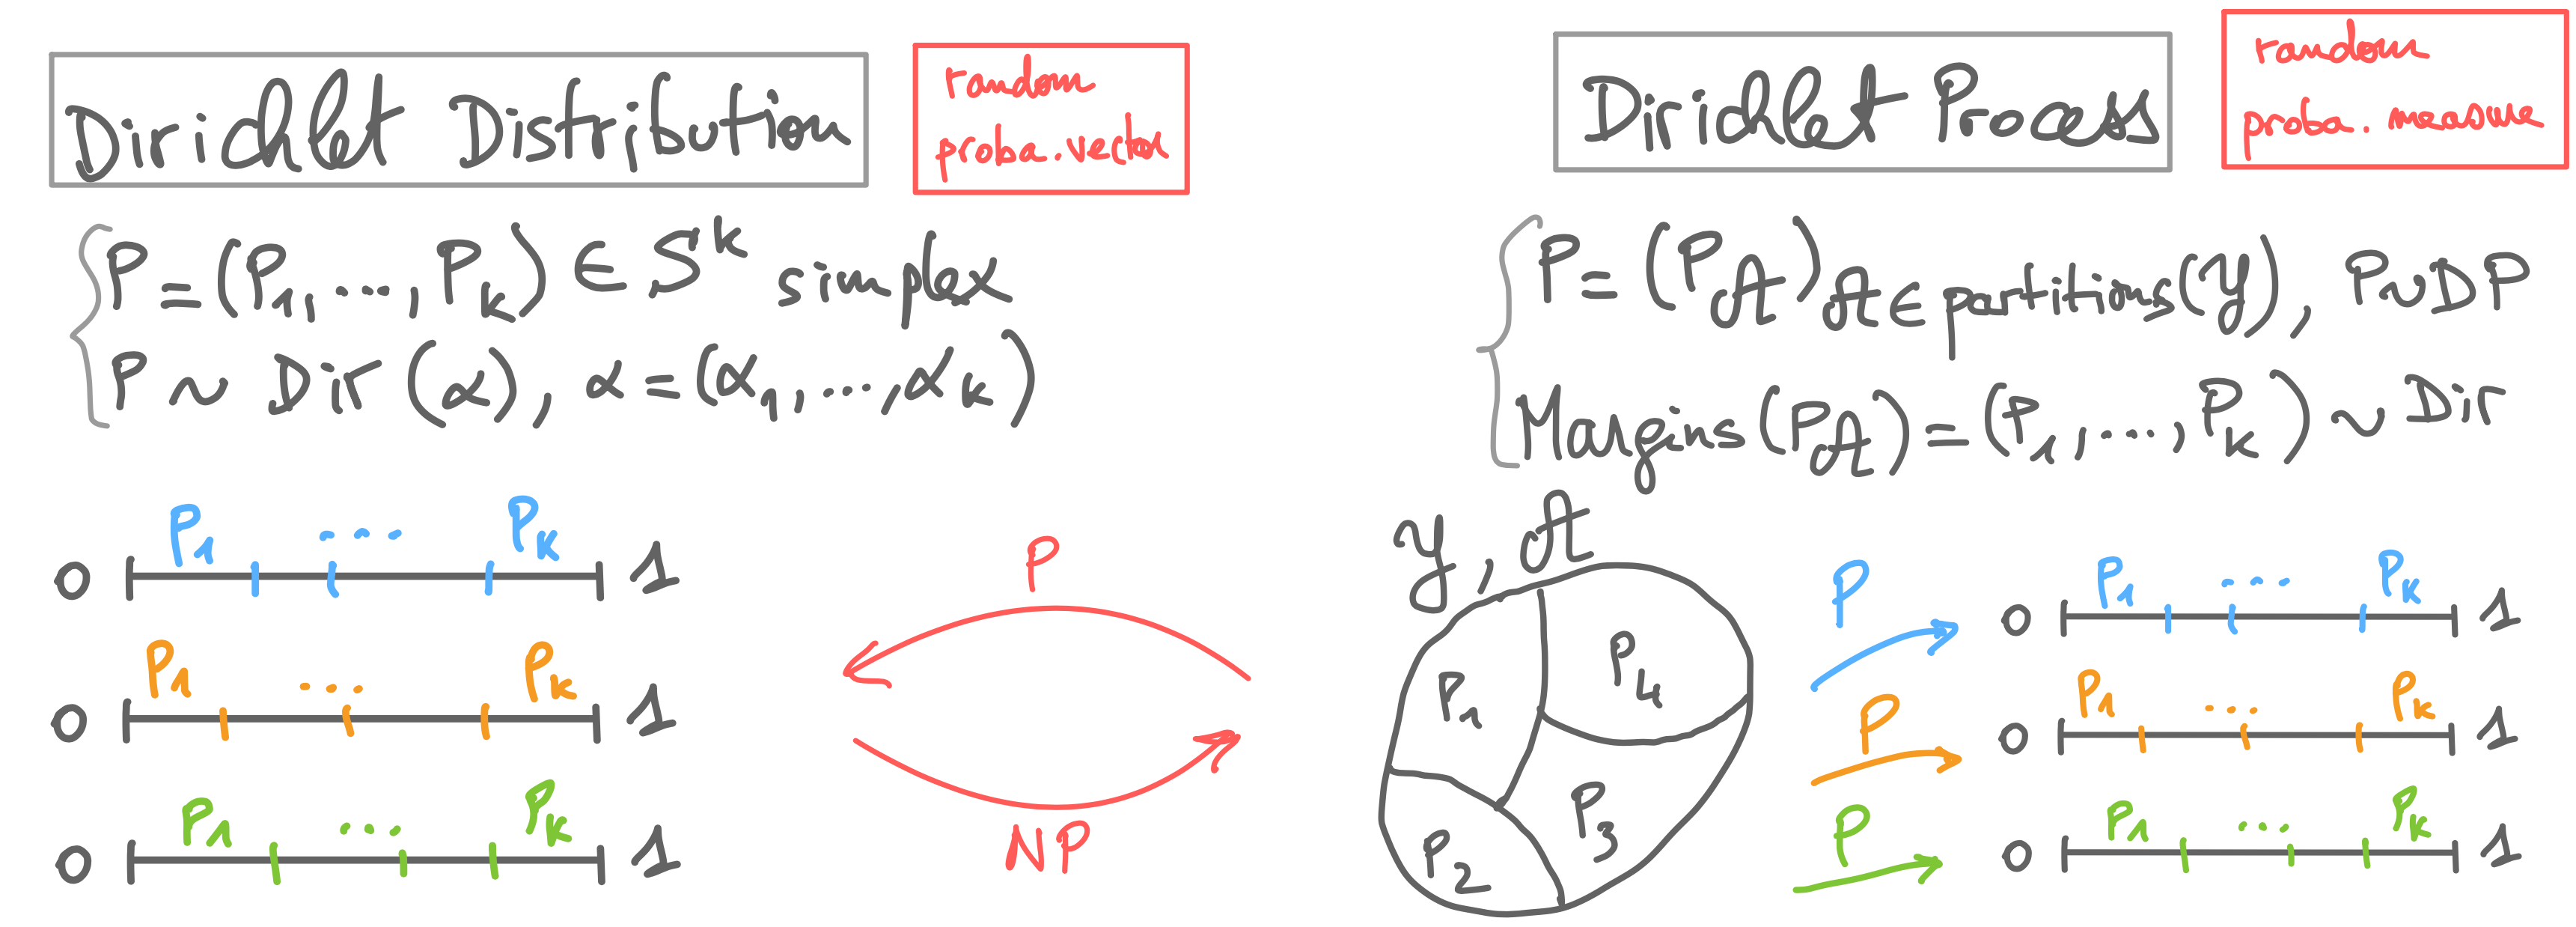 Dirichlet Distribution
random
proba. vector
P = (P₁, ..., P_k) ∈ S^k simplex
P ~ Dir (α), α = (α₁, ..., α_k)
0 P₁ ... P_k 1
0 P₁ ... P_k 1
0 P₁ ... P_k 1
P
NP
Dirichlet Process
random
proba. measure
P = (P_𝒜)_𝒜 ∈ partitions(𝒴), P ~ DP
Margins (P_𝒜) = (P₁, ..., P_k) ~ Dir
𝒴, 𝒜
P₁
P₄
P₂
P₃
P
0 P₁ ... P_k 1
P
0 P₁ ... P_k 1
P
0 P₁ ... P_k 1